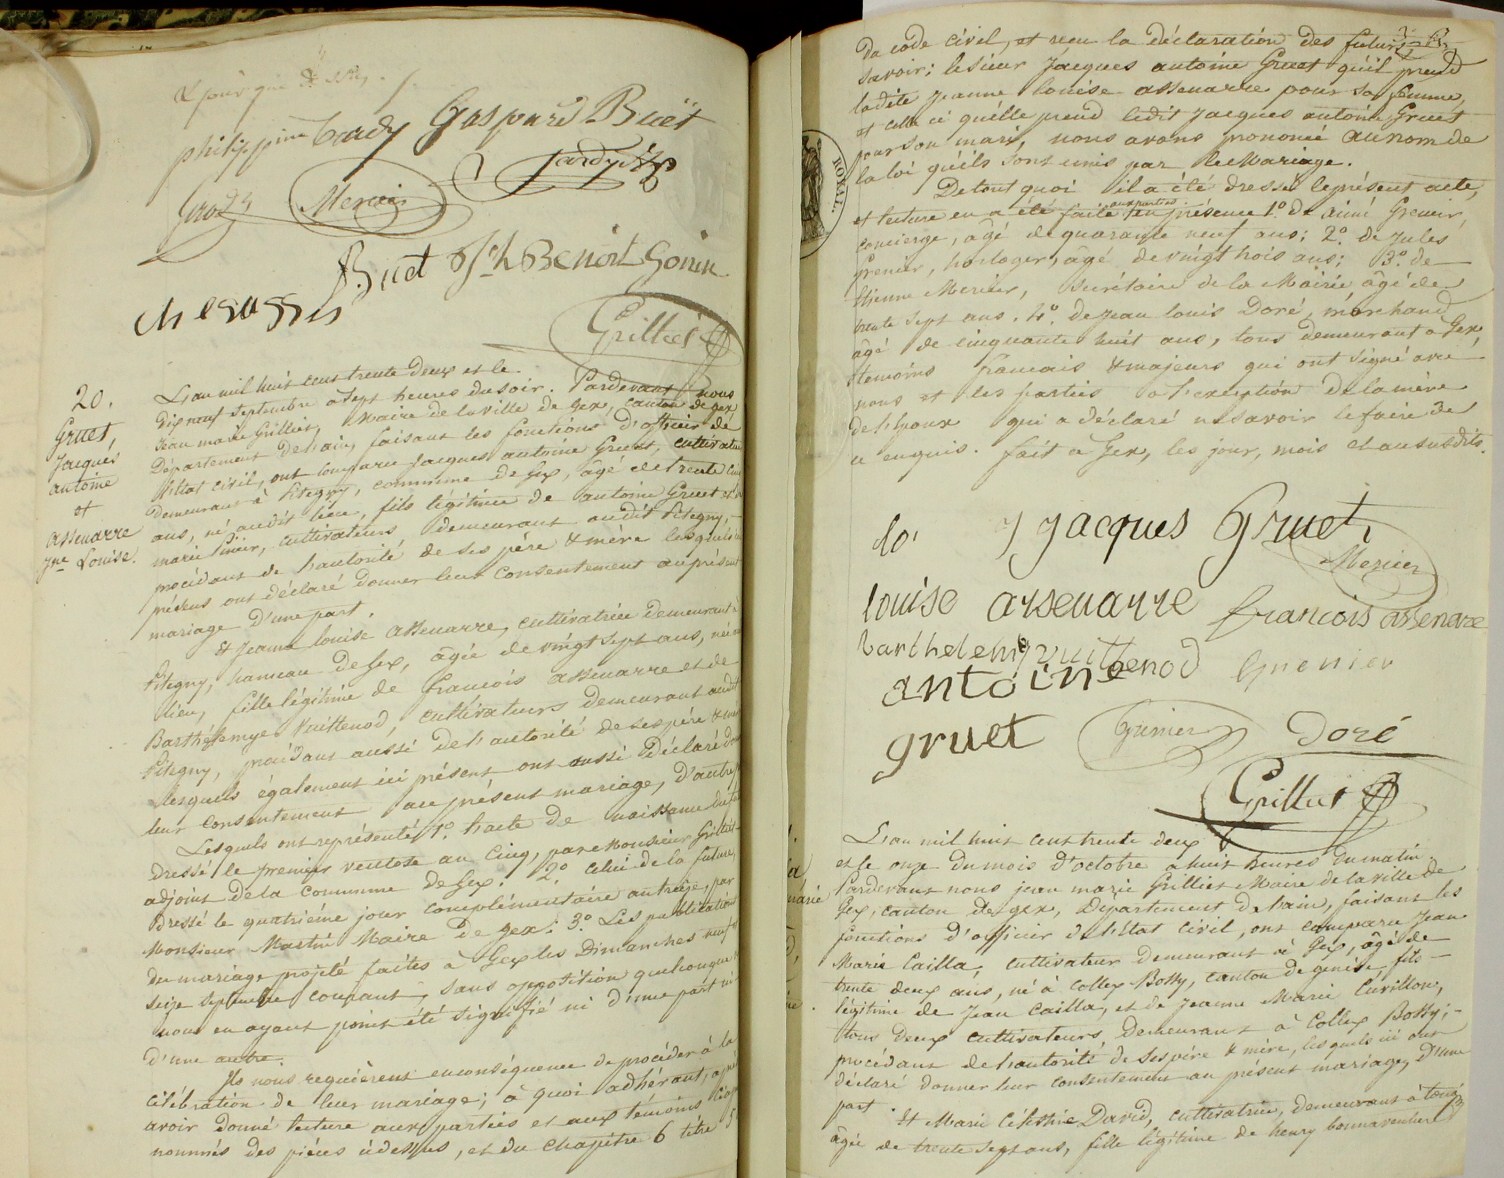 philippine Cady Gaspard Buët
Grody Mercier Jardy
F. Buet Jh Benoit Gonin
Chesassis
Grilliet
20.
Gruet,
Jacques
antoine
et
assenarre
Jne Louise.
L'an mil huit cent trente deux et le
dix neuf septembre à sept heures du soir. Pardevant nous
Jean marie Grilliet, Maire de la ville de Gex, canton de gex
Département de l'ain, faisant les fonctions d'officier de
l'état civil, ont comparu Jacques antoine Gruet, cultivateur
demeurant à Pitegny, commune de Gex, âgé de trente cinq
ans, né audit lieu, fils légitime de antoine Gruet et de
marie Pinier, cultivateurs demeurant audit Pitegny,
procédant de l'autorité de ses père & mère lesquels ici
présens ont déclaré donner leur consentement au présent
mariage d'une part.
& Jeanne Louise assenarre, cultivatrice demeurant à
Pitegny, hameau de Gex, âgée de vingt sept ans, née au dit
lieu, fille légitime de françois assenarre et de
Barthélemye Vuittenod, cultivateurs demeurant audit
Pitegny, procédant aussi de l'autorité de ses père & mère
lesquels également ici présent ont aussi déclaré donner
leur consentement au présent mariage, d'autre part
Lesquels ont représenté 1.º l'acte de naissance du futur
dressé le premier ventose an cinq, par Monsieur Grilliet
adjoint de la commune de Gex. 2.º celui de la future,
dressé le quatrième jour complémentaire an treize, par
Monsieur Martin Maire de gex; 3.º Les publications
du mariage projeté faites à Gex les Dimanches neuf &
seize septembre courant, sans opposition quelconque
nous en ayant point été signifié ni d'une part ni
d'une autre.
Ils nous requièrent en conséquence de procéder à la
célébration de leur mariage; à quoi adhérant, après
avoir donné lecture aux parties et aux témoins ci après
nommés des pièces cidessus, et du chapitre 6 titre 5
Du code civil, et reçu la déclaration des futurs
savoir: le sieur Jacques antoine Gruet qu'il prend
ladite Jeanne Louise assenarre pour sa femme,
et celle ci qu'elle prend ledit Jacques antoine Gruet
pour son mari, nous avons prononcé au nom de
la loi qu'ils sont unis par le Mariage.
De tout quoi il a été dressé le présent acte,
et lecture en a été faite aux parties en présence 1.º de aimé Grenier,
concierge, âgé de quarante neuf ans; 2.º de Jules
Grenier, horloger, âgé de vingt trois ans; 3.º de
Etienne Mercier, secrétaire de la Mairie âgé de
trente sept ans. 4.º de Jean Louis Doré, marchand
âgé de cinquante huit ans, tous demeurant à Gex,
témoins français & majeurs qui ont signé avec
nous et les parties à l'exception de la mère
de l'époux qui a déclaré ne savoir le faire de
ce enquis. fait à Gex, les jour, mois et an susdits.
lo' J Jacques Gruet,
Mercier
louise arsenarre françois assenare
barthelemy vuittenod Grenier
antoine
gruet Grenier Doré
Grilliet
L'an mil huit cent trente deux
et le onze du mois d'octobre à huit heures du matin
Pardevant nous jean marie Grilliet Maire de la ville de
Gex, canton de gex, département de l'ain, faisant les
fonctions d'officier de l'état civil, ont comparu Jean
Marie Cailla, cultivateur demeurant à Gex, âgé de
trente deux ans, né à Collex Bossy, canton de genève, fils
légitime de Jean Cailla, et de Jeanne Marie Cuvillon,
tous deux cultivateurs, demeurant à Collex Bossy;
procédant de l'autorité de ses père & mère, lesquels ici ont
déclaré donner leur consentement au présent mariage, d'une
part.
Et Marie Césthie David, cultivatrice, demeurant à
âgée de trente sept ans, fille légitime de henry bonnaventure
ROYAL.